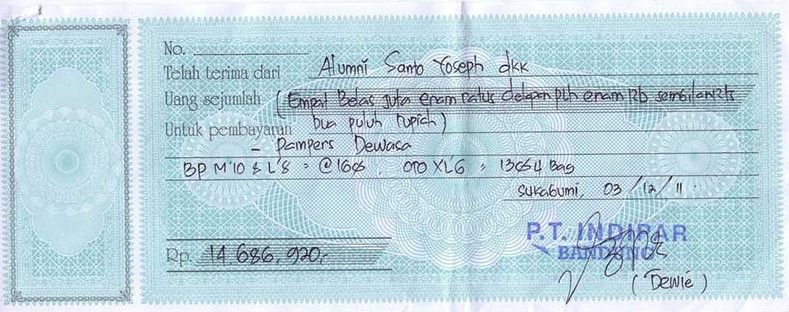 No.
Telah terima dari Alumni Santo Yoseph dkk
Uang sejumlah (Empat Belas Juta enam ratus delapan plh enam rb sembilan rts
Dua puluh rupiah)
Untuk pembayaran
- Pampers Dewasa
BP M'10 & L'8 = @ OTO XL6 = Bag
Sukabumi, 03/12/11.
P.T. INDIRAR
BANDUNG
Rp. 14.686.920,-
(Dewie)